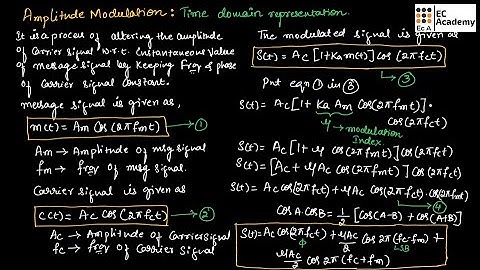 Amplitude Modulation: Time domain representation.
EC
Academy
EC A
It is a process of altering the amplitude
of carrier signal w.r.t. instantaneous value
of message signal by keeping freq & phase
of carrier signal constant.
message signal is given as,
m(t) = Am Cos (2πfmt) → ①
Am → Amplitude of msg signal
fm → freq of msg signal.
Carrier signal is given as
c(t) = Ac cos (2πfct) → ②
Ac → Amplitude of Carrier signal
fc → freq of Carrier Signal
The modulated signal is given as
S(t) = Ac [1+ Ka m(t)] cos (2πfct)
③
Put eqn ① in ③
S(t) = Ac [1+ Ka Am cos(2πfmt)] · cos(2πfct)
μ → modulation
Index.
S(t) = Ac [1+ μ cos(2πfmt)] cos(2πfct)
S(t) = [Ac + μAc cos(2πfmt)] cos(2πfct)
S(t) = Ac cos(2πfct) + μAc cos(2πfct) · cos(2πfmt)
④
cosA · cosB = 1/2 [cos(A-B) + cos(A+B)]
S(t) = Ac cos(2πfct) + μAc/2 cos 2π(fc-fm) +
LSB
μAc/2 cos 2π(fc+fm)